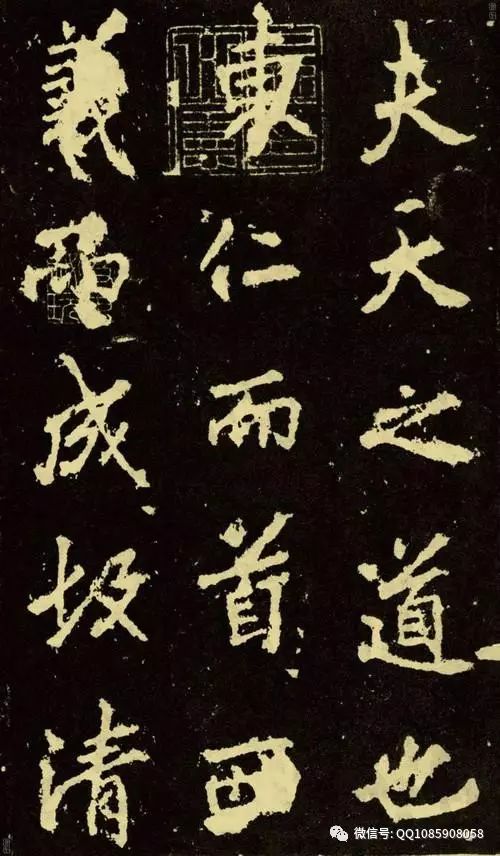 夫天之道也
東仁而首西
義而成故清
微信号: QQ1085908058